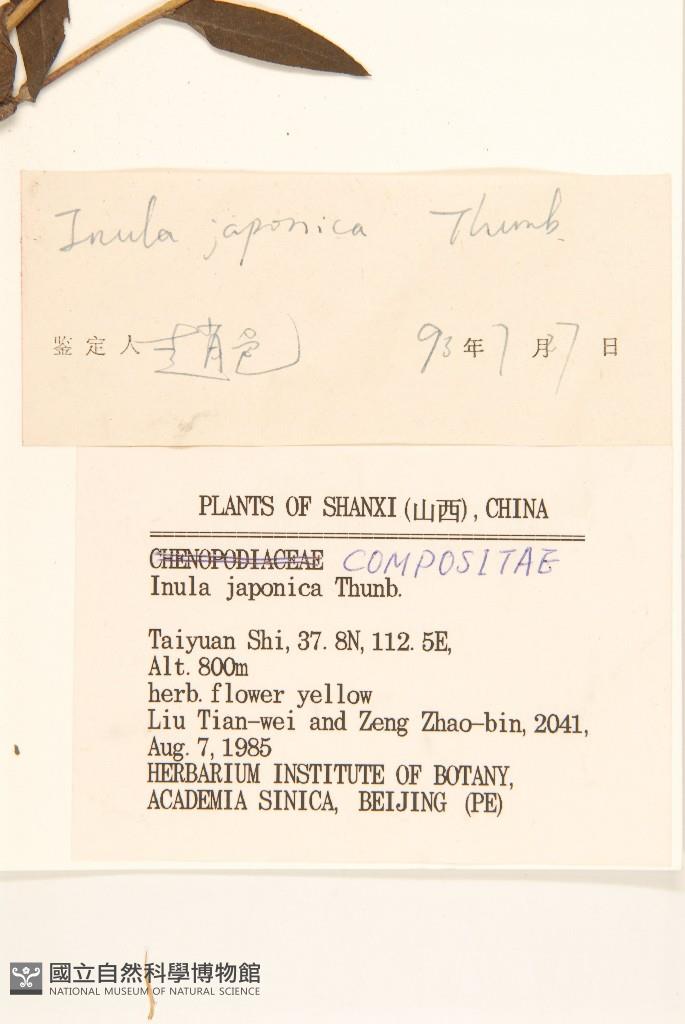 Inula japonica Thunb.
鉴定人 93年7月7日
PLANTS OF SHANXI (山西), CHINA
CHENOPODIACEAE COMPOSITAE
Inula japonica Thunb.
Taiyuan Shi, 37.8N, 112.5E,
Alt. 800m
herb. flower yellow
Liu Tian-wei and Zeng Zhao-bin, 2041,
Aug. 7, 1985
HERBARIUM INSTITUTE OF BOTANY,
ACADEMIA SINICA, BEIJING (PE)
國立自然科學博物館
NATIONAL MUSEUM OF NATURAL SCIENCE